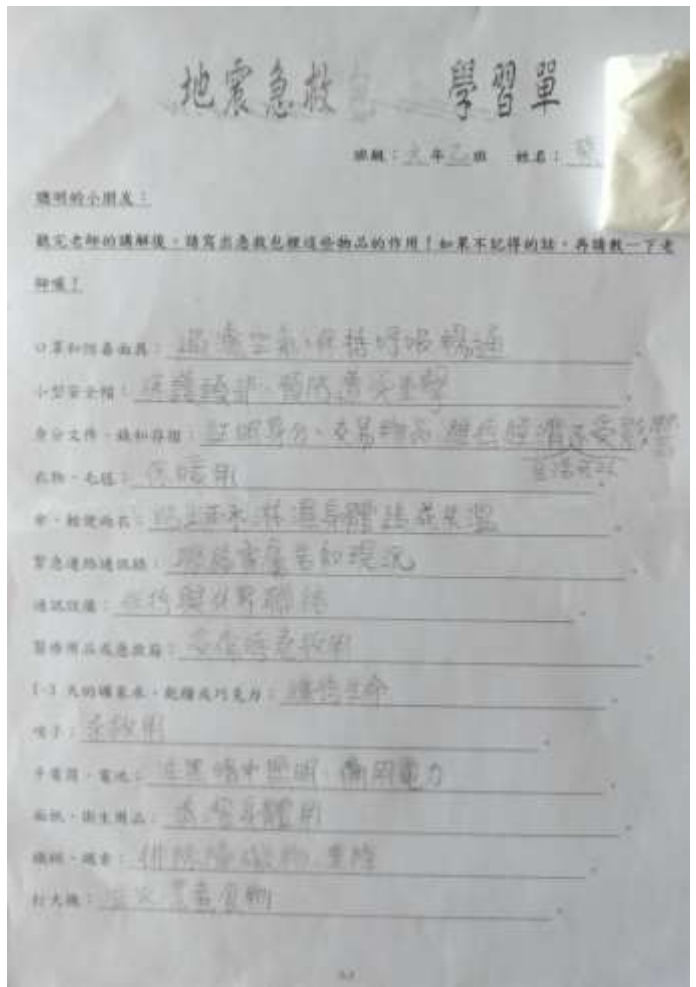 地震急救包 學習單
班級：六年乙班 姓名：
聰明的小朋友！
聽完老師的講解後，請寫出急救包裡這些物品的作用！如果不記得的話，再請教一下老
師哦！
口罩和防毒面具：過濾空氣、保持呼吸暢通。
小型安全帽：保護頭部，預防遭受重擊。
身分文件、錢和存摺：証明身分、交易物品 維持經濟不受影響
生活
衣物、毛毯：保暖用。
傘、輕便雨衣：防止雨水淋濕身體造成失溫。
緊急連絡通訊錄：聯絡家屬告知現況。
通訊設備：保持與外界聯絡。
醫療用品或急救箱：受傷時急救用。
1-3天的礦泉水、乾糧或巧克力：維持生命。
哨子：求救用。
手電筒、電池：在黑暗中照明、備用電力。
面紙、衛生用品：清潔身體用。
繩索：排除障礙物、垂降。
打火機：生火、烹煮食物。